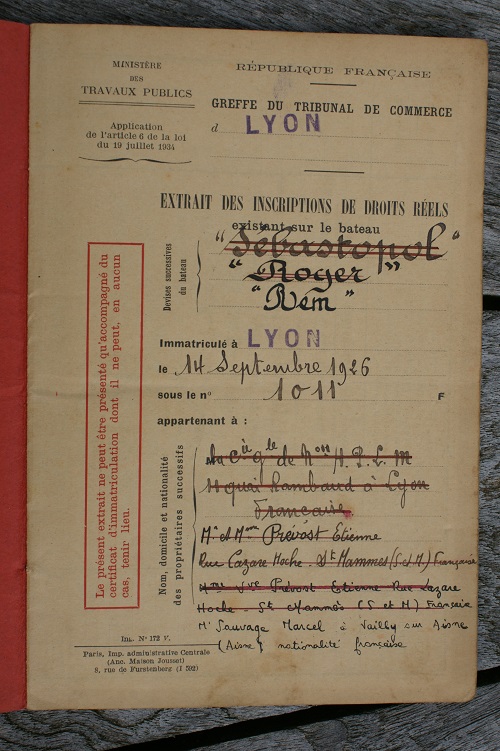 MINISTÈRE
DES
TRAVAUX PUBLICS
Application
de l'article 6 de la loi
du 19 juillet 1934
RÉPUBLIQUE FRANÇAISE
GREFFE DU TRIBUNAL DE COMMERCE
d LYON
EXTRAIT DES INSCRIPTIONS DE DROITS RÉELS
existant sur le bateau
Devises successives
du bateau
"Sébastopol"
"Roger"
"Rem"
Immatriculé à LYON
le 14 Septembre 1926
sous le n° 1011 F
appartenant à :
Nom, domicile et nationalité
des propriétaires successifs
La Cie Gle de Non H. P. L. M
11 quai Rambaud à Lyon
Française
Mr et Mme Prévost Etienne
Rue Lazare Hoche - St Mammès (S et M.) Française
Mme Vve Prévost Etienne Rue Lazare
Hoche - St Mammès (S et M) Française
Mr Sauvage Marcel à Vailly sur Aisne
(Aisne) nationalité française
Le présent extrait ne peut être présenté qu'accompagné du
certificat d'immatriculation dont il ne peut, en aucun
cas, tenir lieu.
Im. N° 172 V.
Paris, Imp. administrative Centrale
(Anc. Maison Jousset)
8, rue de Furstenberg (I 592)